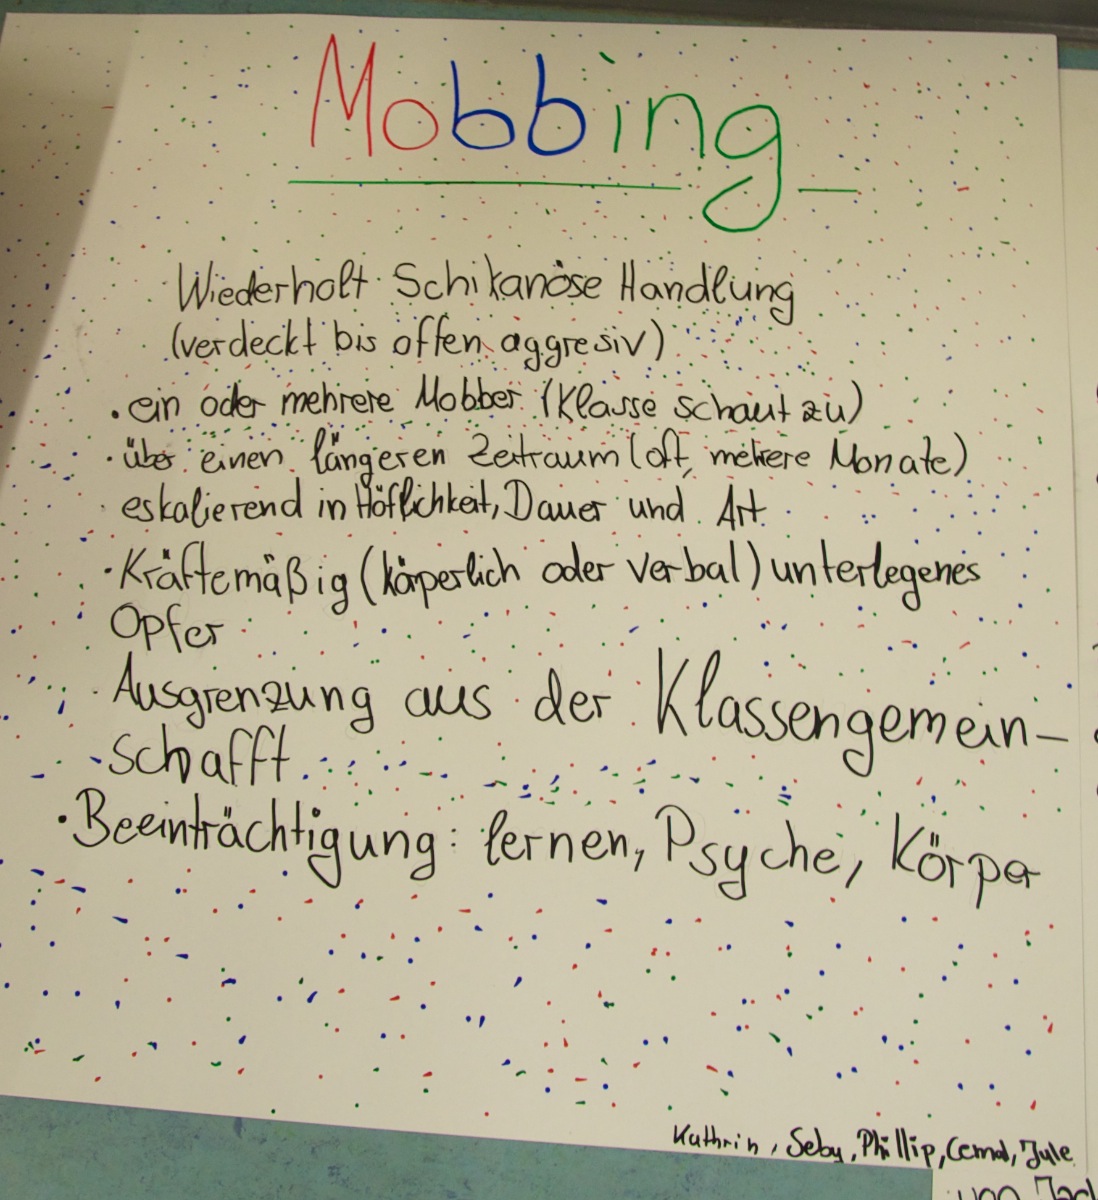 Mobbing
Wiederholt Schikanöse Handlung
(verdeckt bis offen aggresiv)
• ein oder mehrere Mobber (Klasse schaut zu)
• über einen längeren Zeitraum (oft mehrere Monate)
• eskalierend in Höflichkeit, Dauer und Art
• Kräftemäßig (körperlich oder verbal) unterlegenes
Opfer
• Ausgrenzung aus der Klassengemein-
schafft
• Beeinträchtigung: lernen, Psyche, Körper
Kathrin, Seby, Phillip, Cemal, Jule